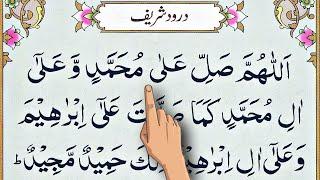 درود شریف
اَللّٰهُمَّ صَلِّ عَلٰی مُحَمَّدٍ وَّ عَلٰٓی
اٰلِ مُحَمَّدٍ کَمَا عَلٰٓی اِبْرٰهِیْمَ
وَ عَلٰٓی اٰلِ اِبْرٰهِیْمَ حَمِیْدٌ مَّجِیْدٌ ؕ